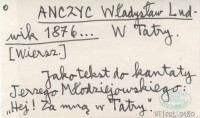 ANCZYC Władysław Lud-
wik 1876... W Tatry.
[Wiersz]
Jako tekst do kantaty
Jerzego Młodziejowskiego:
"Hej! Za mną w Tatry".